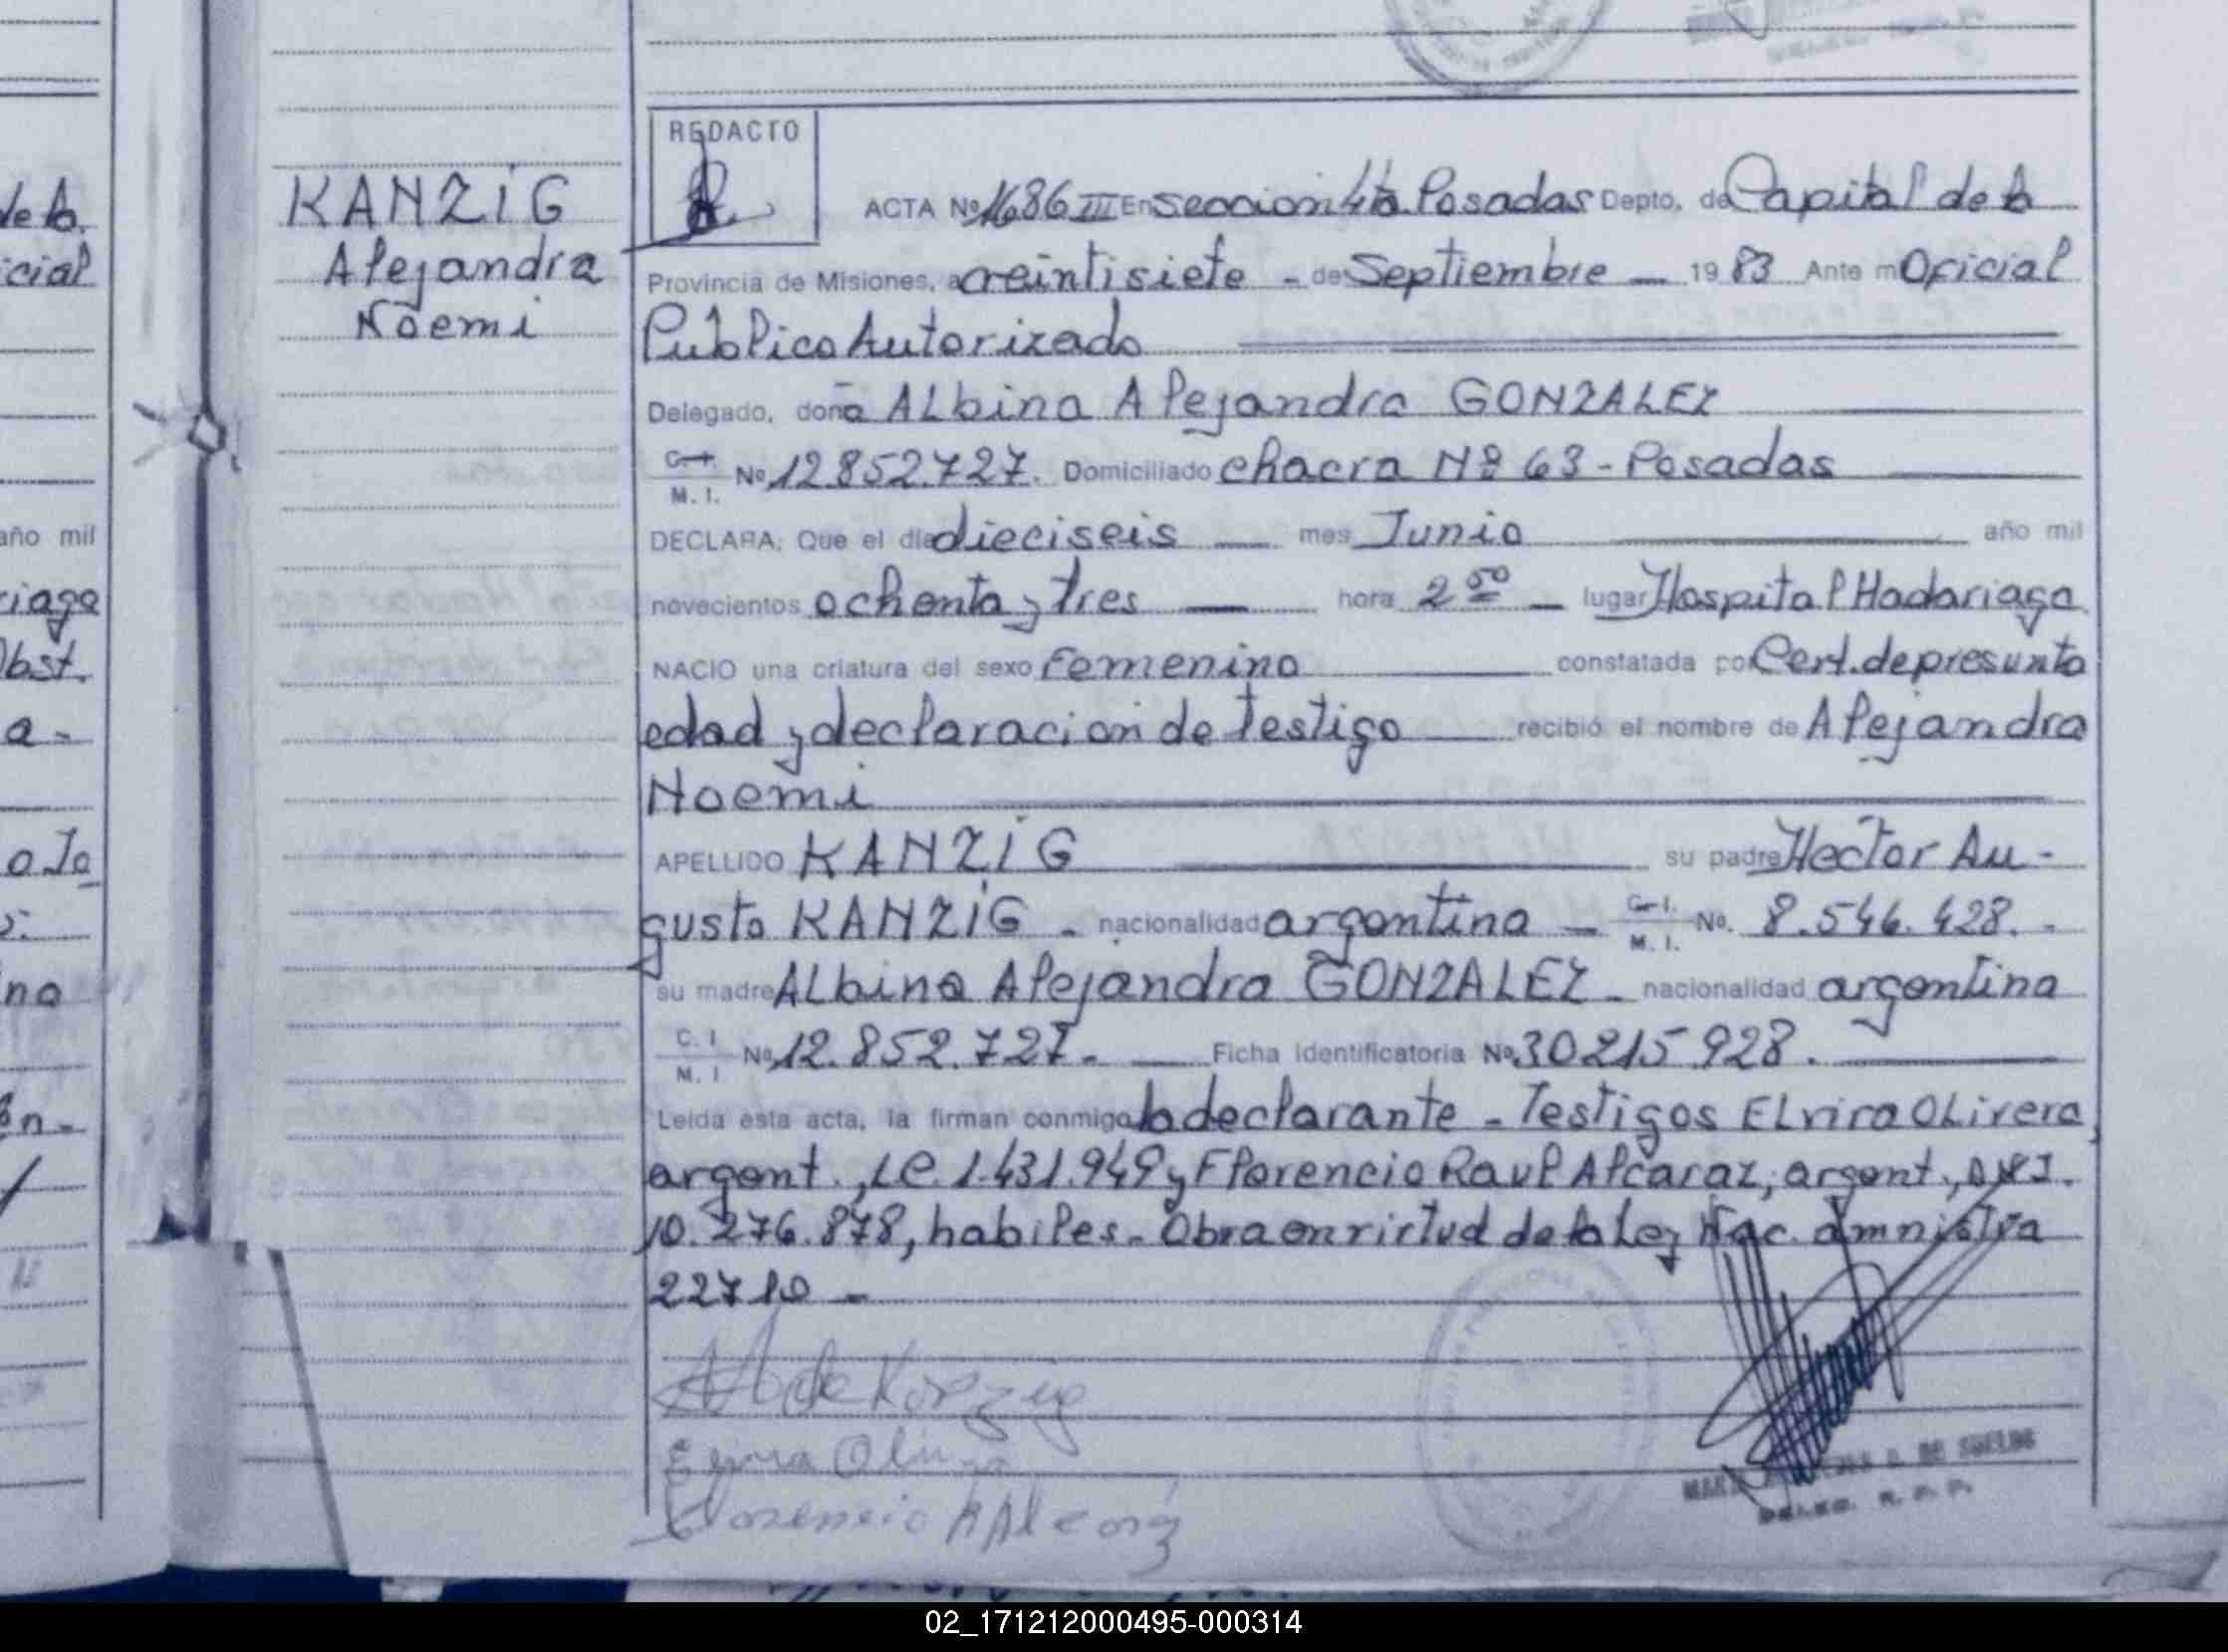 KANZIG
Alejandra
Noemi
REDACTO
ACTA Nº 1686 III En seccion 4ta Posadas Depto, de Capital de la
Provincia de Misiones, a veintisiete - de Septiembre — 19 83 Ante mi Oficial
Publico Autorizado
Delegado, doña ALbina Alejandra GONZALEZ
C. I. / M. I. Nº 12.852.727. Domiciliado chacra Nº 63 - Posadas
DECLARA: Que el día dieciseis — mes Junio año mil
novecientos ochenta y tres — hora 2 50 — lugar Hospital Madariaga
NACIO una criatura del sexo Femenino constatada por Cert. de presunta
edad y declaracion de testigo recibió el nombre de Alejandra
Noemi
APELLIDO KANZIG su padre Hector Au-
gusto KANZIG - nacionalidad argentina — C. I. / M. I. No. 8.546.428. -
su madre ALbina Alejandra GONZALEZ - nacionalidad argentina
C. I / M. I Nº 12.852.727. — Ficha Identificatoria Nº 30215928.
Leída esta acta, la firman conmigo la declarante - Testigos ELvira OLivera,
argent., LC. 1.431.949 y Florencio Raul Alcaraz, argent., DNI.
10.276.878, habiles. Obra en virtud de la Ley Nac. amnistia
22710 -
Florencio R Alcaraz
DE SUELDO
DELEG. R. P. P.
de la
cial
año mil
riaga
Obst.
a -
no
02_171212000495-000314